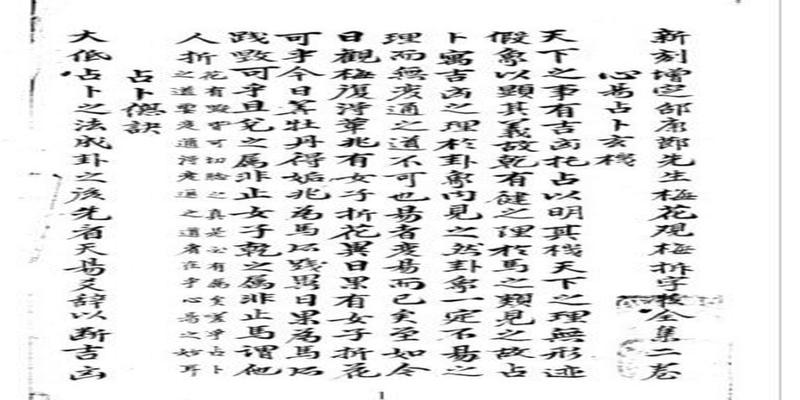 新刻增定邵康節先生梅花观梅拆字数全集二卷
心易占卜玄機
天下之事有吉凶托占以明其機天下之理無形迹
假象以顯其義故乾有健之理於馬之類見之故占
卜寓吉凶之理於卦象内見之然卦象一定不易之
理而無变通之道不可也易者变易而已矣至如今
日觀梅復得革兆有女子折花異日果有女子折花
可乎今日筭牡丹得姤兆為馬所踐異日果為馬所
踐毁可乎且兌之属非止女子乾之属非止馬謂他
人折花有毁皆可切驗之真是必有属矣嗟乎占卜
之道要变通得变通之道者在乎心易之妙耳
占卜總訣
大低占卜之法成卦之後先看天易爻辞以断吉凶
1